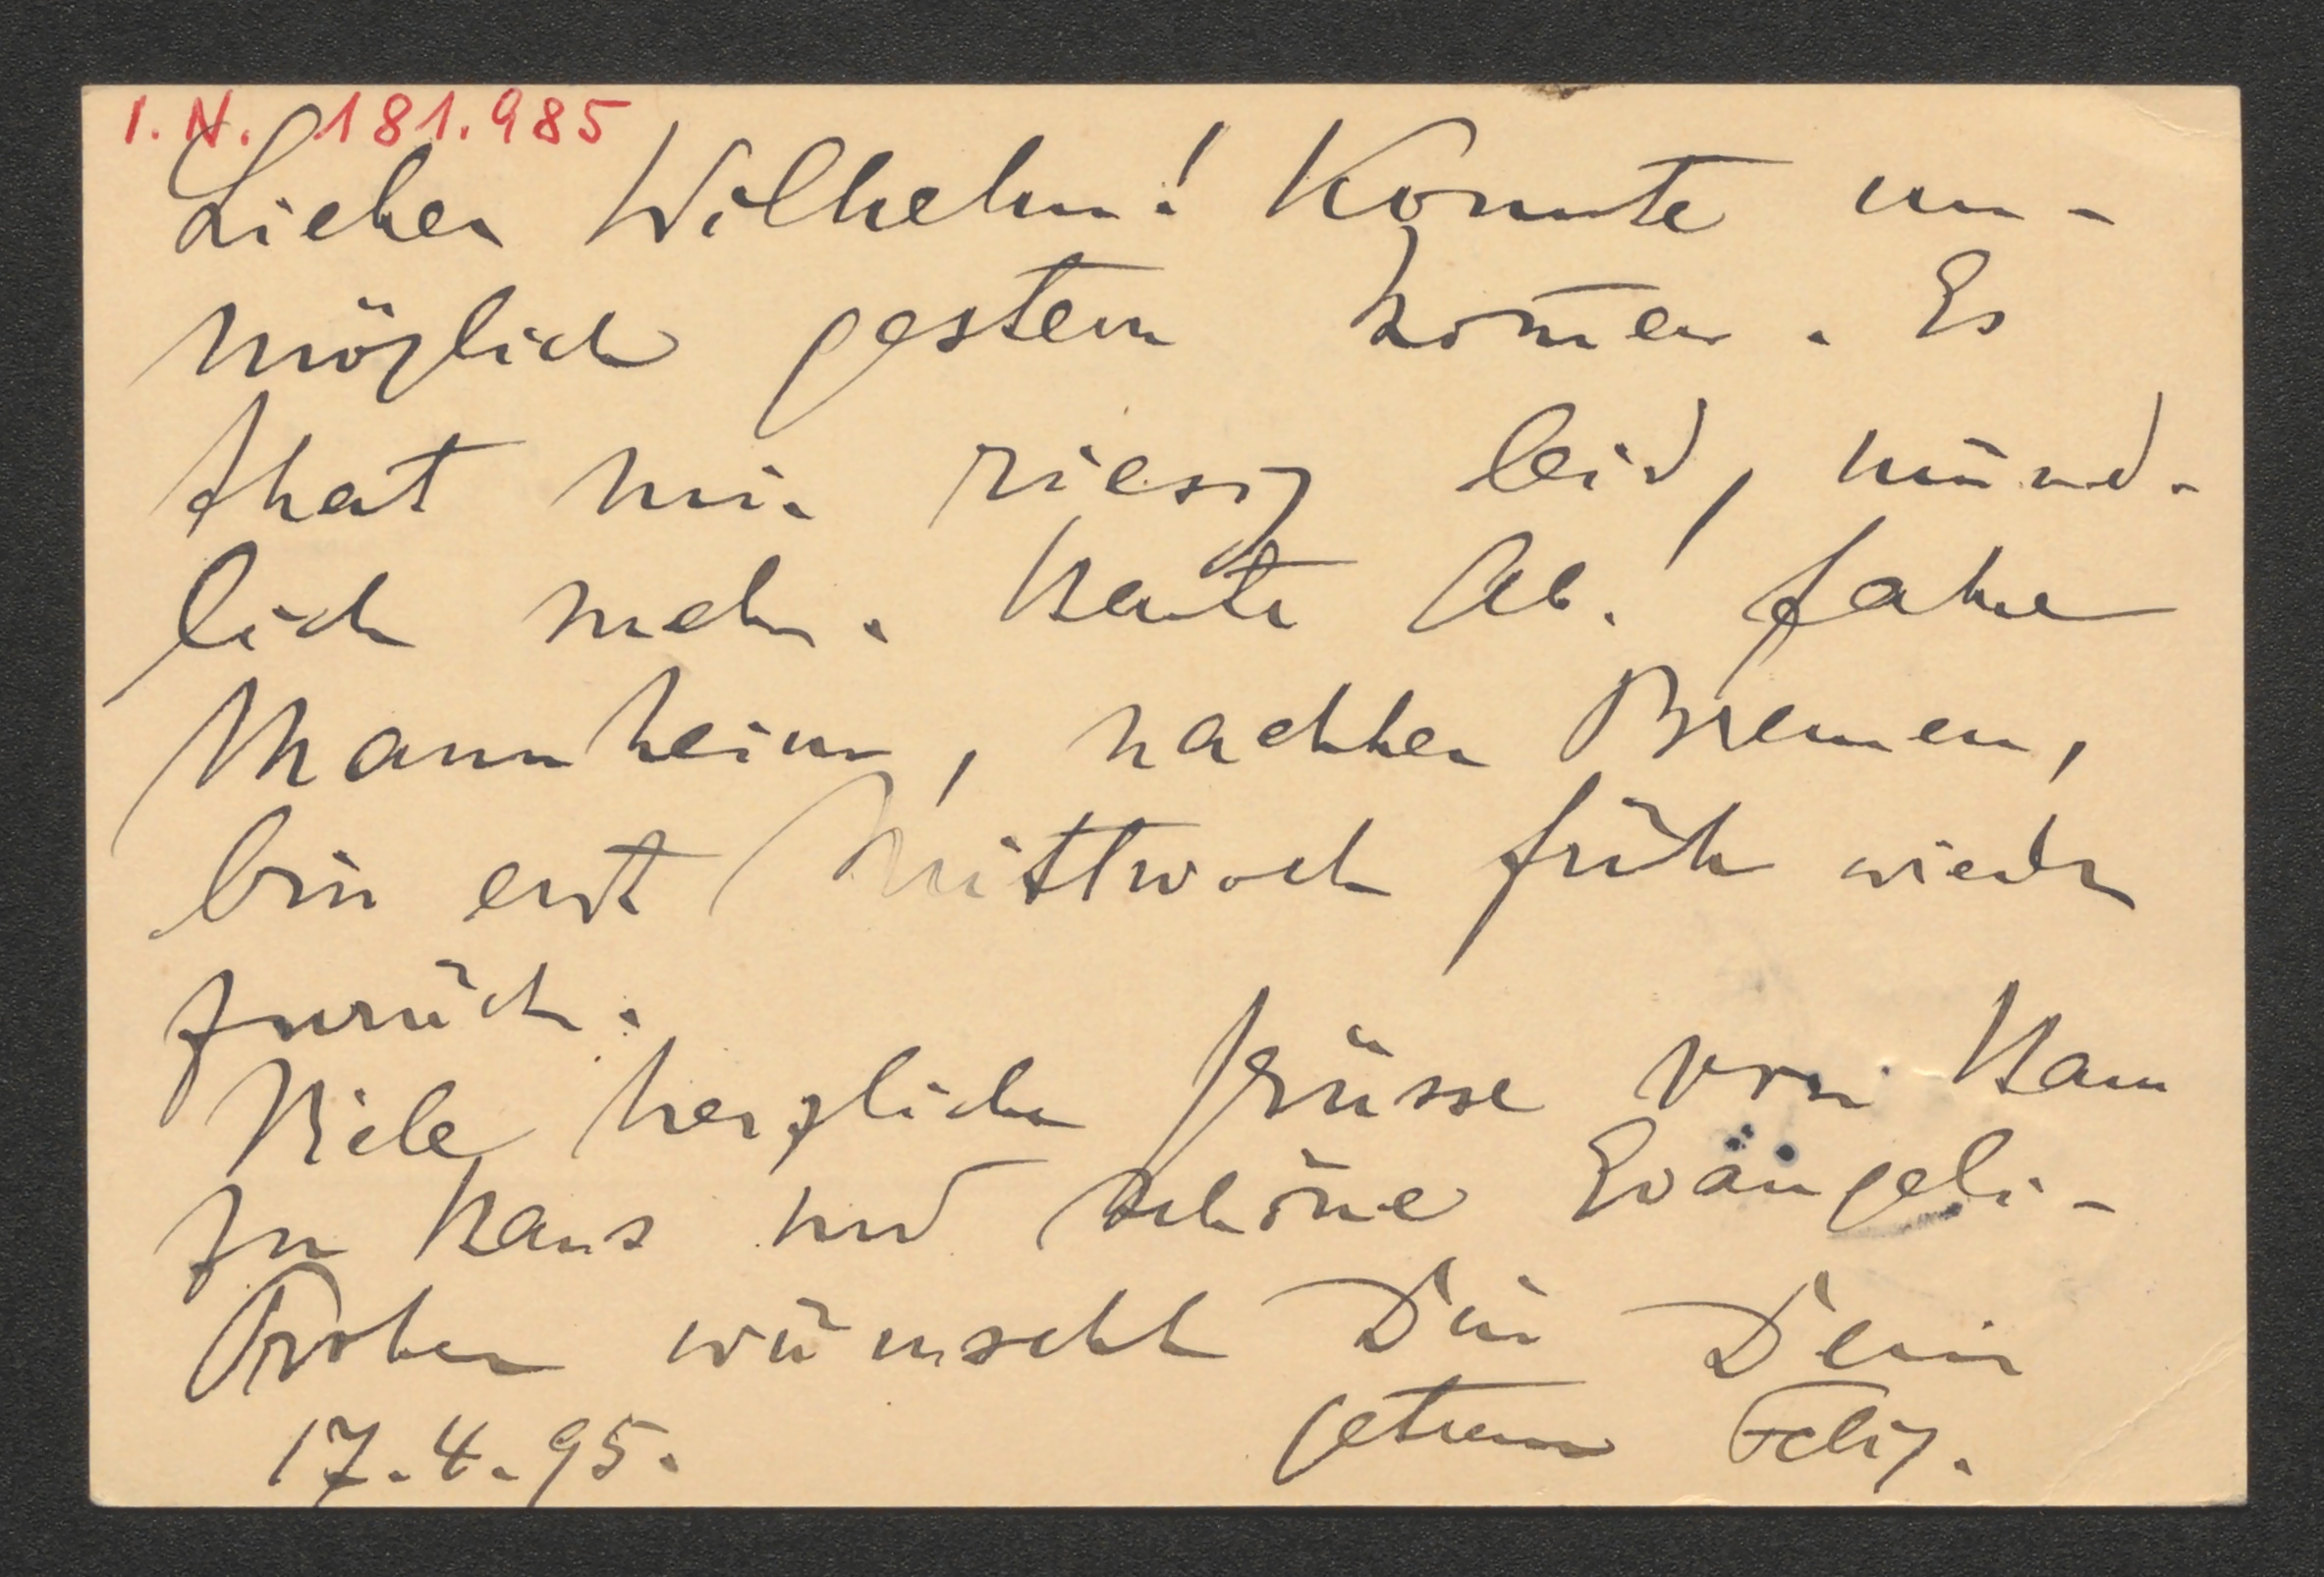 I.N. 181.985
Lieber Wilhelm! Konnte un-
möglich gestern kom̄en. Es
that mir riesig leid, münd-
lich mehr. Heute Ab. fahre
Mannheim, nachher Bremen,
bin erst Mittwoch früh wieder
zurück.
Viele herzliche Grüsse von Haus
zu Haus und schöne Evangeli-
Proben wünscht Dir Dein
getreuer Felix.
17.4.95.